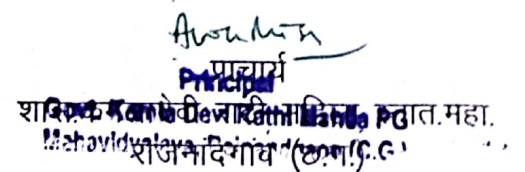 प्राचार्य
Principal
शास. कमलादेवी राठी महिला स्नात.महा.
Govt. Kamla Devi Rathi Mahila PG
Mahavidyalaya
राजनांदगांव (छ.ग.)